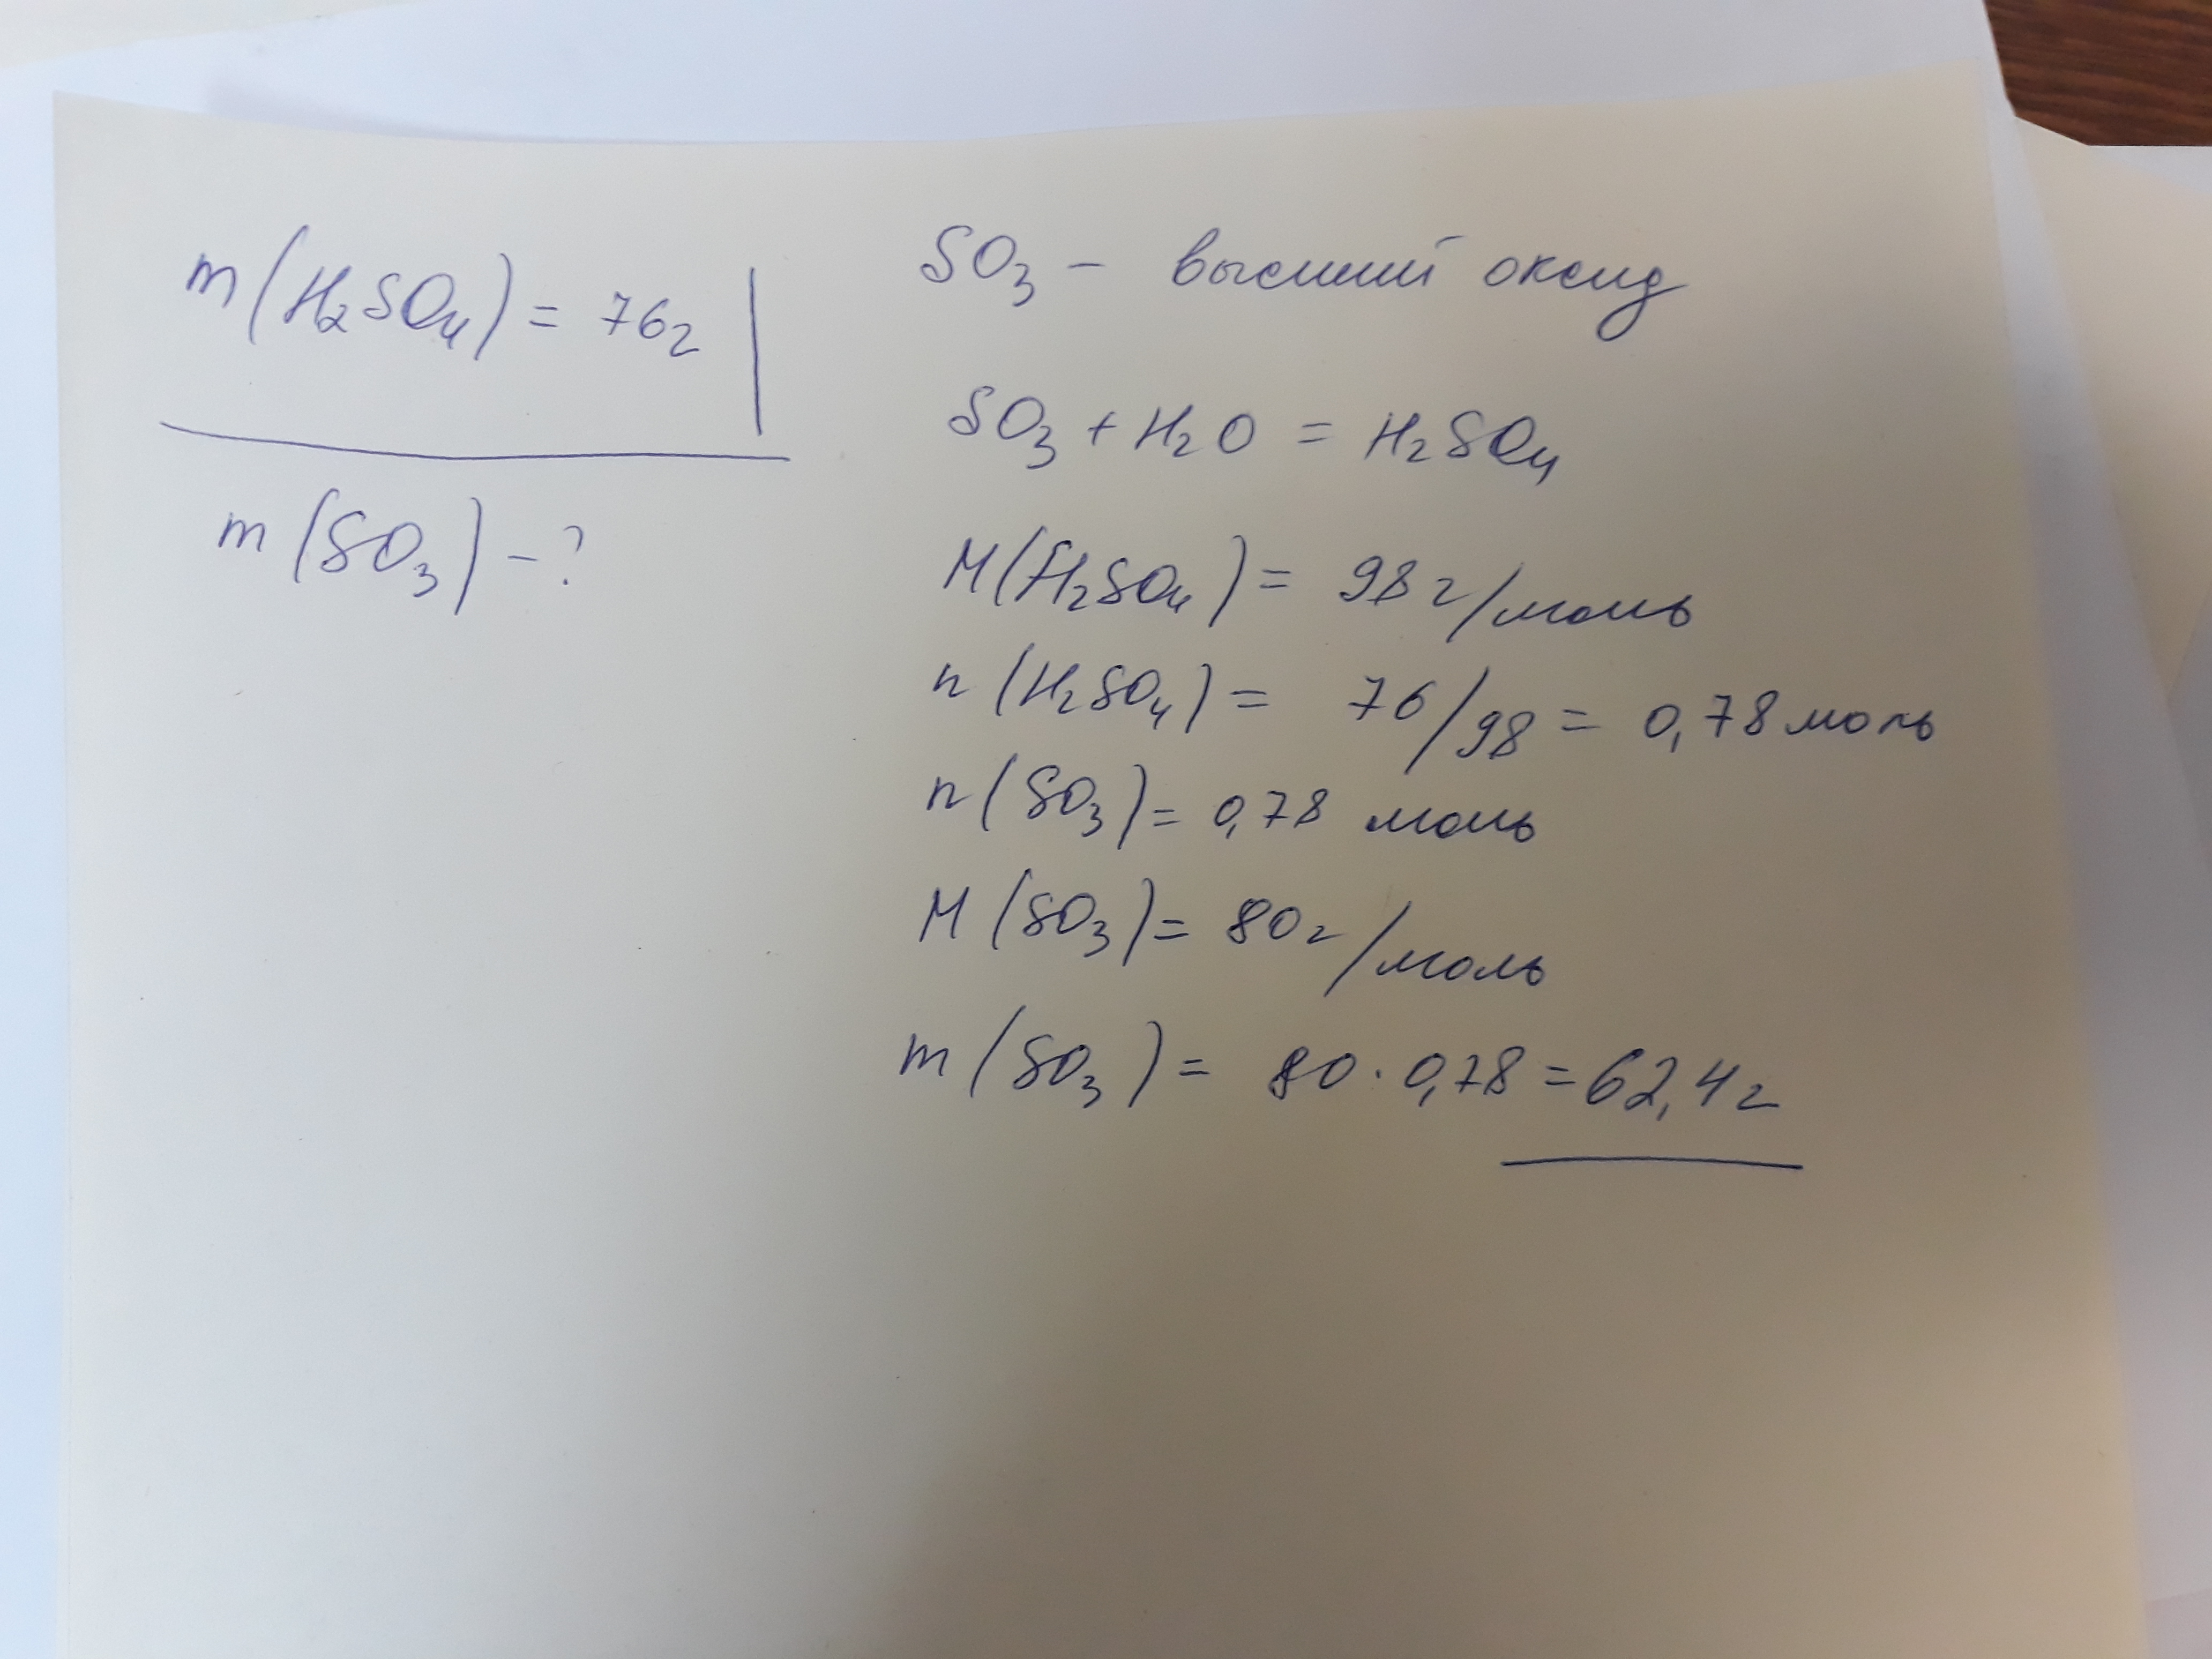 m(H₂SO₄) = 76г
m(SO₃) - ?
SO₃ - высший оксид
SO₃ + H₂O = H₂SO₄
M(H₂SO₄) = 98 г/моль
n(H₂SO₄) = 76/98 = 0,78 моль
n(SO₃) = 0,78 моль
M(SO₃) = 80г/моль
m(SO₃) = 80 · 0,78 = 62,4г